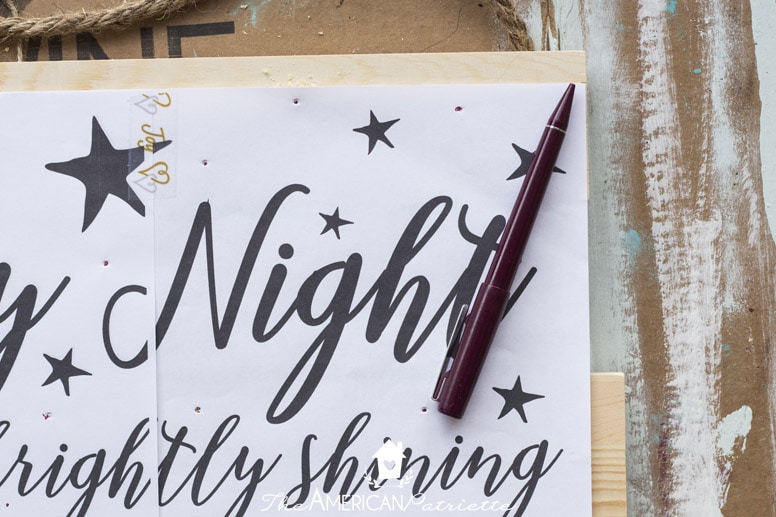 Joy
y Night
rightly shining
The AMERICAN Patriette